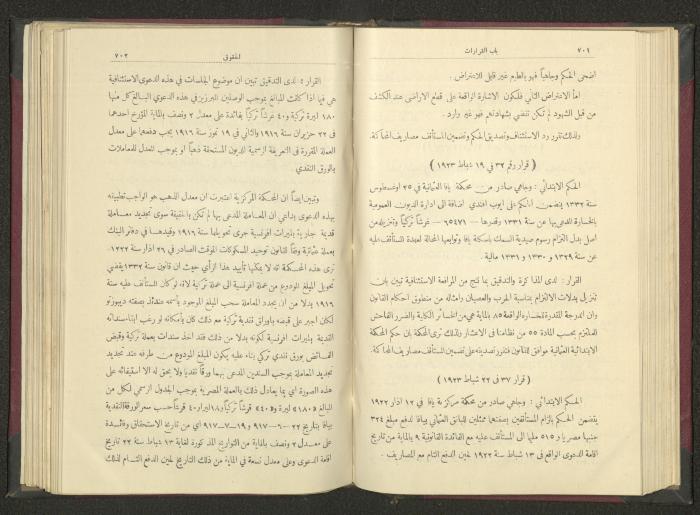 ٧٠١ باب القرارات
اضحى الحكم وجاهياً فهو بالطبع غير قابل للاعتراض.
اما الاعتراض الثاني فلكون الاشارة الواقعة على قطع الاراضي عند الكشف
من قبل الشهود لم تكن تنفي شهادتهم فهو غير وارد.
ولذلك تقرر رد الاستئناف وتصديق الحكم وتضمين المستأنف مصاريف المحاكمة.
( قرار رقم ٣٢ في ١٩ شباط ١٩٢٣ )
الحكم الابتدائي: وجاهي صادر من محكمة يافا العثمانية في ٢٥ اوغسطوس
سنة ١٣٣٢ يتضمن الحكم على ايوب افندي اضافة الى ادارة الديون العمومية
بالخسارة المدعى بها عن سنة ١٣٣١ وقدرها — ٦٥٤٧١ — غرشاً تركياً وتنزيله من
اصل بدل التزام رسوم صيدية السمك باسكلة يافا وتوابعها المحالة لعهدة المستأنف عليه
عن سنة ١٣٢٩ و ١٣٣٠ و ١٣٣١ مالية.
القرار: لدى المذاكرة والتدقيق بما نتج من المرافعة الاستئنافية تبين بان
تنزيل بدلات الالتزام بمناسبة الحرب والعصيان وامثاله من منطوق احكام القانون
وان الدرجة المقدرة للخسارة الواقعة ٨٥ بالماية هي من الخسائر الكلية والضرر الفاحش
للملتزم بحسب المادة ٥٥ من نظامنا في الاعشار ولذلك ترى المحكمة بان حكم المحكمة
الابتدائية العثمانية موافق للقانون فتقرر تصديقه على تضمين المستأنف مصاريف المحاكمة.
( قرار ٣٧ في ٢٢ شباط ١٩٢٣ )
الحكم الابتدائي: وجاهي صادر من محكمة مركزية يافا في ١٢ اذار ١٩٢٢
يتضمن الحكم بالزام المستأنفين بصفتهما ممثلين للبانق العثماني بيافا لدفع مبلغ ٣٢٤
جنيها مصريا و ٥١٥ مليما الى المستأنف عليه مع الفائدة القانونية ٩ بالماية من تاريخ
اقامة الدعوى الواقع في ١٣ شباط سنة ١٩٢٢ لحين الدفع التام مع المصاريف.
الحقوق ٧٠٢
القرار: لدى التدقيق تبين ان موضوع الجلسات في هذه الدعوى الاستئنافية
هي فيما اذا كانت المبالغ بموجب الوصلين المبرزين في هذه الدعوى البالغ كل منها
١٨٠ ليرة تركية و ٤٠ غرشاً تركياً بفائدة على معدل ٢ ونصف بالماية المؤرخ احدهما
في ٢٢ حزيران سنة ١٩١٦ والثاني في ١٩ تموز سنة ١٩١٦ يجب دفعها على معدل
العملة المقررة في التعريفة الرسمية للديون المستحقة ذهباً او بموجب المعدل للمعاملات
بالورق النقدي
وتبين ايضاً ان المحكمة المركزية اعتبرت ان معدل الذهب هو الواجب تطبيقه
بهذه الدعوى بداعي ان المعاملة المدعى بها لم تكن بالحقيقة سوى تجديد معاملة
قديمة جارية بليرات افرنسية جرى تحويلها سنة ١٩١٦ وقيدها في دفتر البنك
بعملة عثمانية وفقاً لقانون توحيد المسكوكات الموقت الصادر في ٢٦ اذار سنة ١٣٣٢
ترى هذه المحكمة انه لا يمكنها تأييد هذا الرأي حيث ان قانون سنة ١٣٣٢ يقضي
تحويل المبلغ المودوع من عملة افرنسية الى عملة تركية لانه لو كان المستأنف عليه سنة
١٩١٦ بدلا من ان يجدد المعاملة سحب المبلغ الموجود باسمه عندئذ بصفته ديبوزيتو
لكان اجبر على قبضه باوراق نقدية تركية مع ذلك كان بامكانه لو رغب ابقاء سنداته
القديمة بليرات افرنسية لكونه بدلا من ذلك فقد اخذ سندات بعملة تركية وقبض
الفائض بورق نقدي تركي بناء عليه يكون المبلغ المودوع من طرفه عند تجديد
تجديد المعاملة بموجب السندين المدعى بهما ورقاً نقديا ولا يحق له الا استيفائه على
هذه الصورة اي بما يعادل ذلك بالعملة المصرية بموجب الجدول الرسمي لكل من
المبالغ «١٨٠» ليرة و «٤٠» قرشاً تركياً و ١٨ ليرا و ٤٠ قرشاً حسب سعر الورقة النقدية
بيافا بتاريخ ٢٢—٦—٩١٧ و ١٩—٧—٩١٧ اي من تاريخ الاستحقاق وفائدة
على معدل ٢ ونصف بالماية من التواريخ المذكورة لغاية ١٣ شباط سنة ٢٢ تاريخ
اقامة الدعوى وعلى معدل تسعة في الماية من ذلك التاريخ لحين الدفع التام لذلك